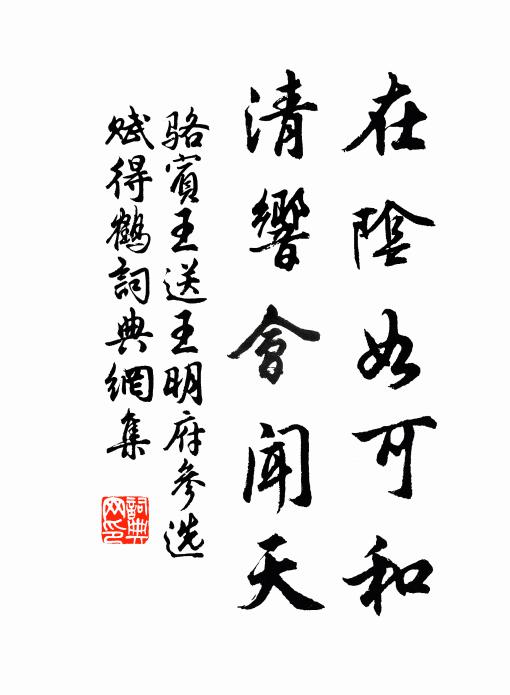 在陰如可和
清響會聞天
骆賓王送王明府參选
赋得鶴詞典網集
詞典
网印